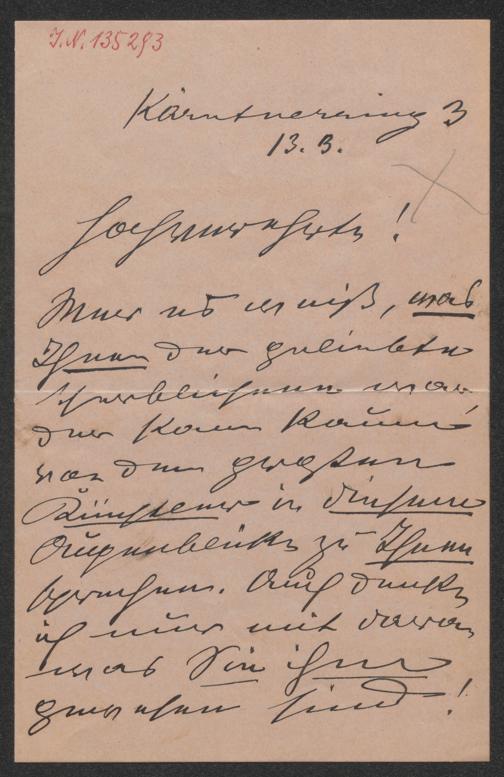 J.N. 135293
Kärntnerring 3
13. 3.
Hochverehrte!
Wer es er weiß, was
Ihnen der geliebte
Verblichene war
der kann kaum
von dem großen
Künstler in diesem
Augenblicke zu Ihnen
sprechen. Auch denke
ich nur mit daran
was Sie ihm
gewesen sind!